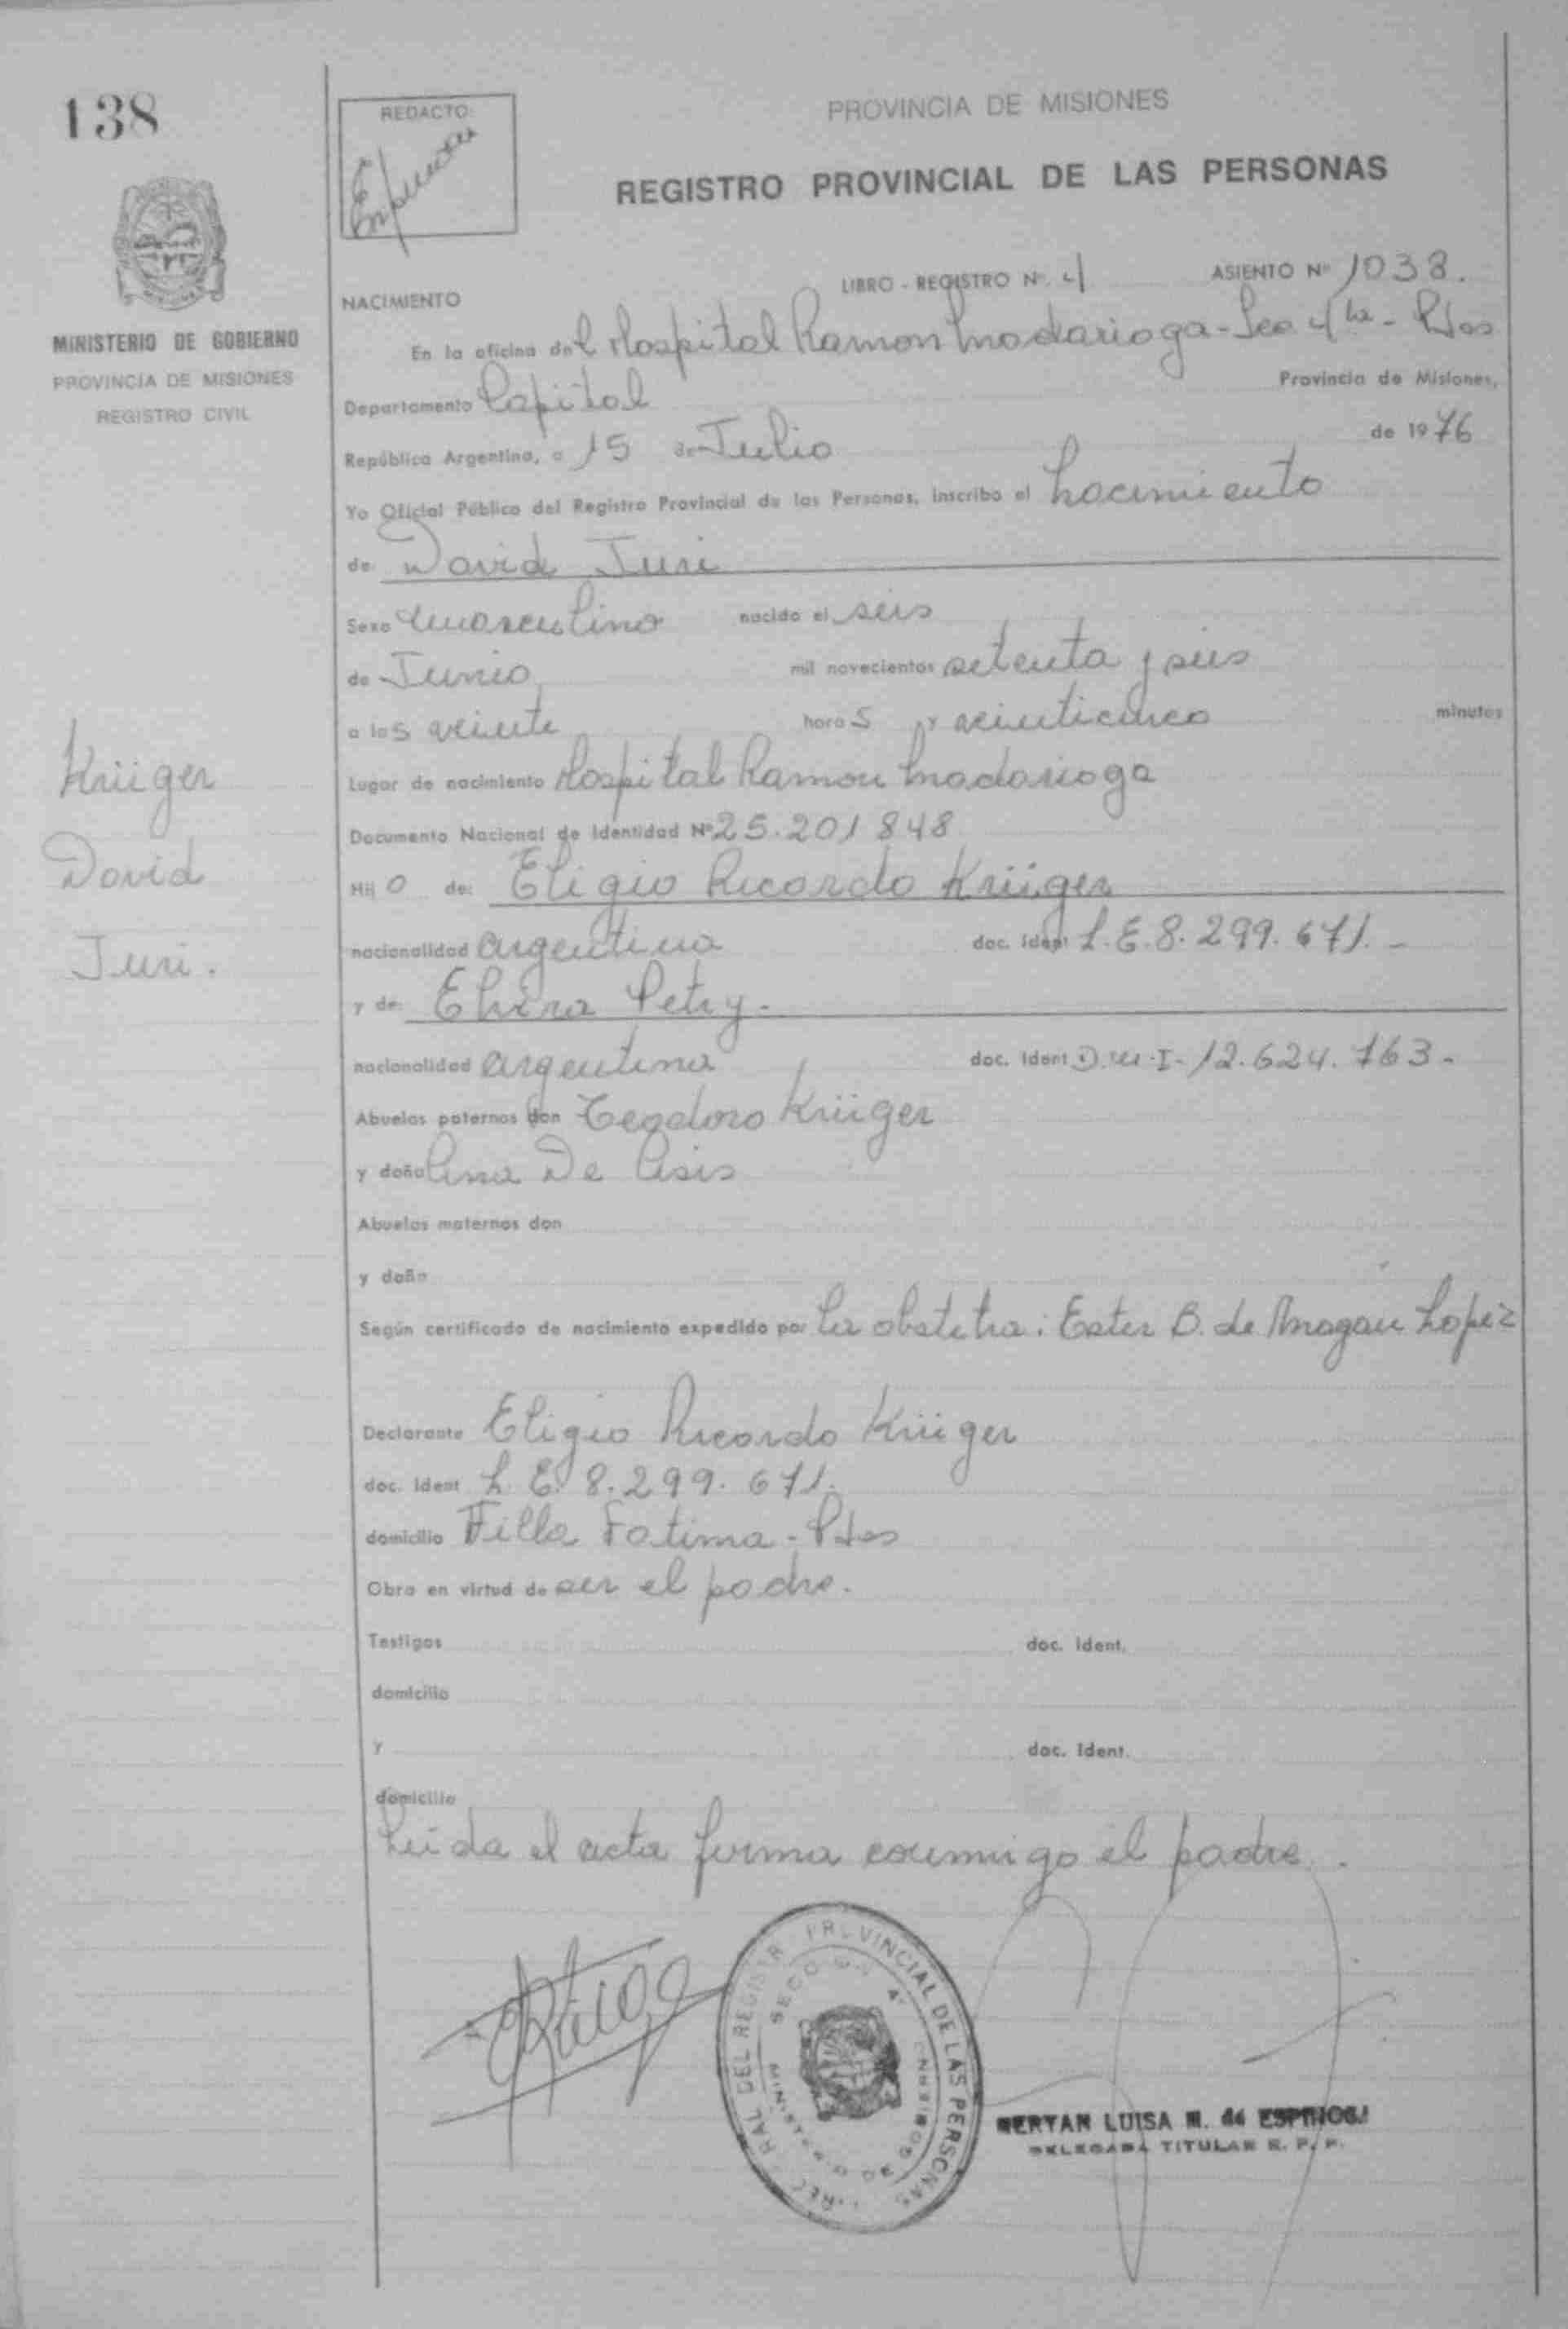 138
REDACTO:
PROVINCIA DE MISIONES
REGISTRO PROVINCIAL DE LAS PERSONAS
MINISTERIO DE GOBIERNO
PROVINCIA DE MISIONES
REGISTRO CIVIL
LIBRO - REGISTRO Nº. 4 ASIENTO Nº 1038.
NACIMIENTO
En la oficina del Hospital Ramon Madariaga - Sec 4ta - Pdas
Departamento Capital Provincia de Misiones,
República Argentina, a 15 de Julio de 1976
Yo Oficial Público del Registro Provincial de las Personas, inscribo el nacimiento
de David Juri
Sexo masculino nacido el seis
de Junio mil novecientos setenta y seis
a las veinte horas y veinticinco minutos
Lugar de nacimiento Hospital Ramon Madariaga
Documento Nacional de Identidad Nº 25.201 848
Hijo de: Eligio Ricardo Krüger
nacionalidad argentina doc. Ident L.E. 8.299.671.-
y de Elvira Petry.
nacionalidad argentina doc. Ident D.N.I- 12.624.763-
Abuelos paternos don Teodoro Krüger
y doña Ana De Asis
Abuelos maternos don
y doña
Según certificado de nacimiento expedido por La obstetra: Ester B. de Magan Lopez
Declarante Eligio Ricardo Krüger
doc. Ident L.E. 8.299.671.
domicilio Villa Fatima - Pdas
Obra en virtud de ser el padre.
Testigos doc. Ident.
domicilio
y doc. Ident.
domicilio
Leida el acta firma conmigo el padre.
Krüger
David
Juri.
DEL REGISTR PROVINCIAL DE LAS PERSONAS
LUISA M. de ESPINOSA
DELEGADA TITULAR R. P. P.